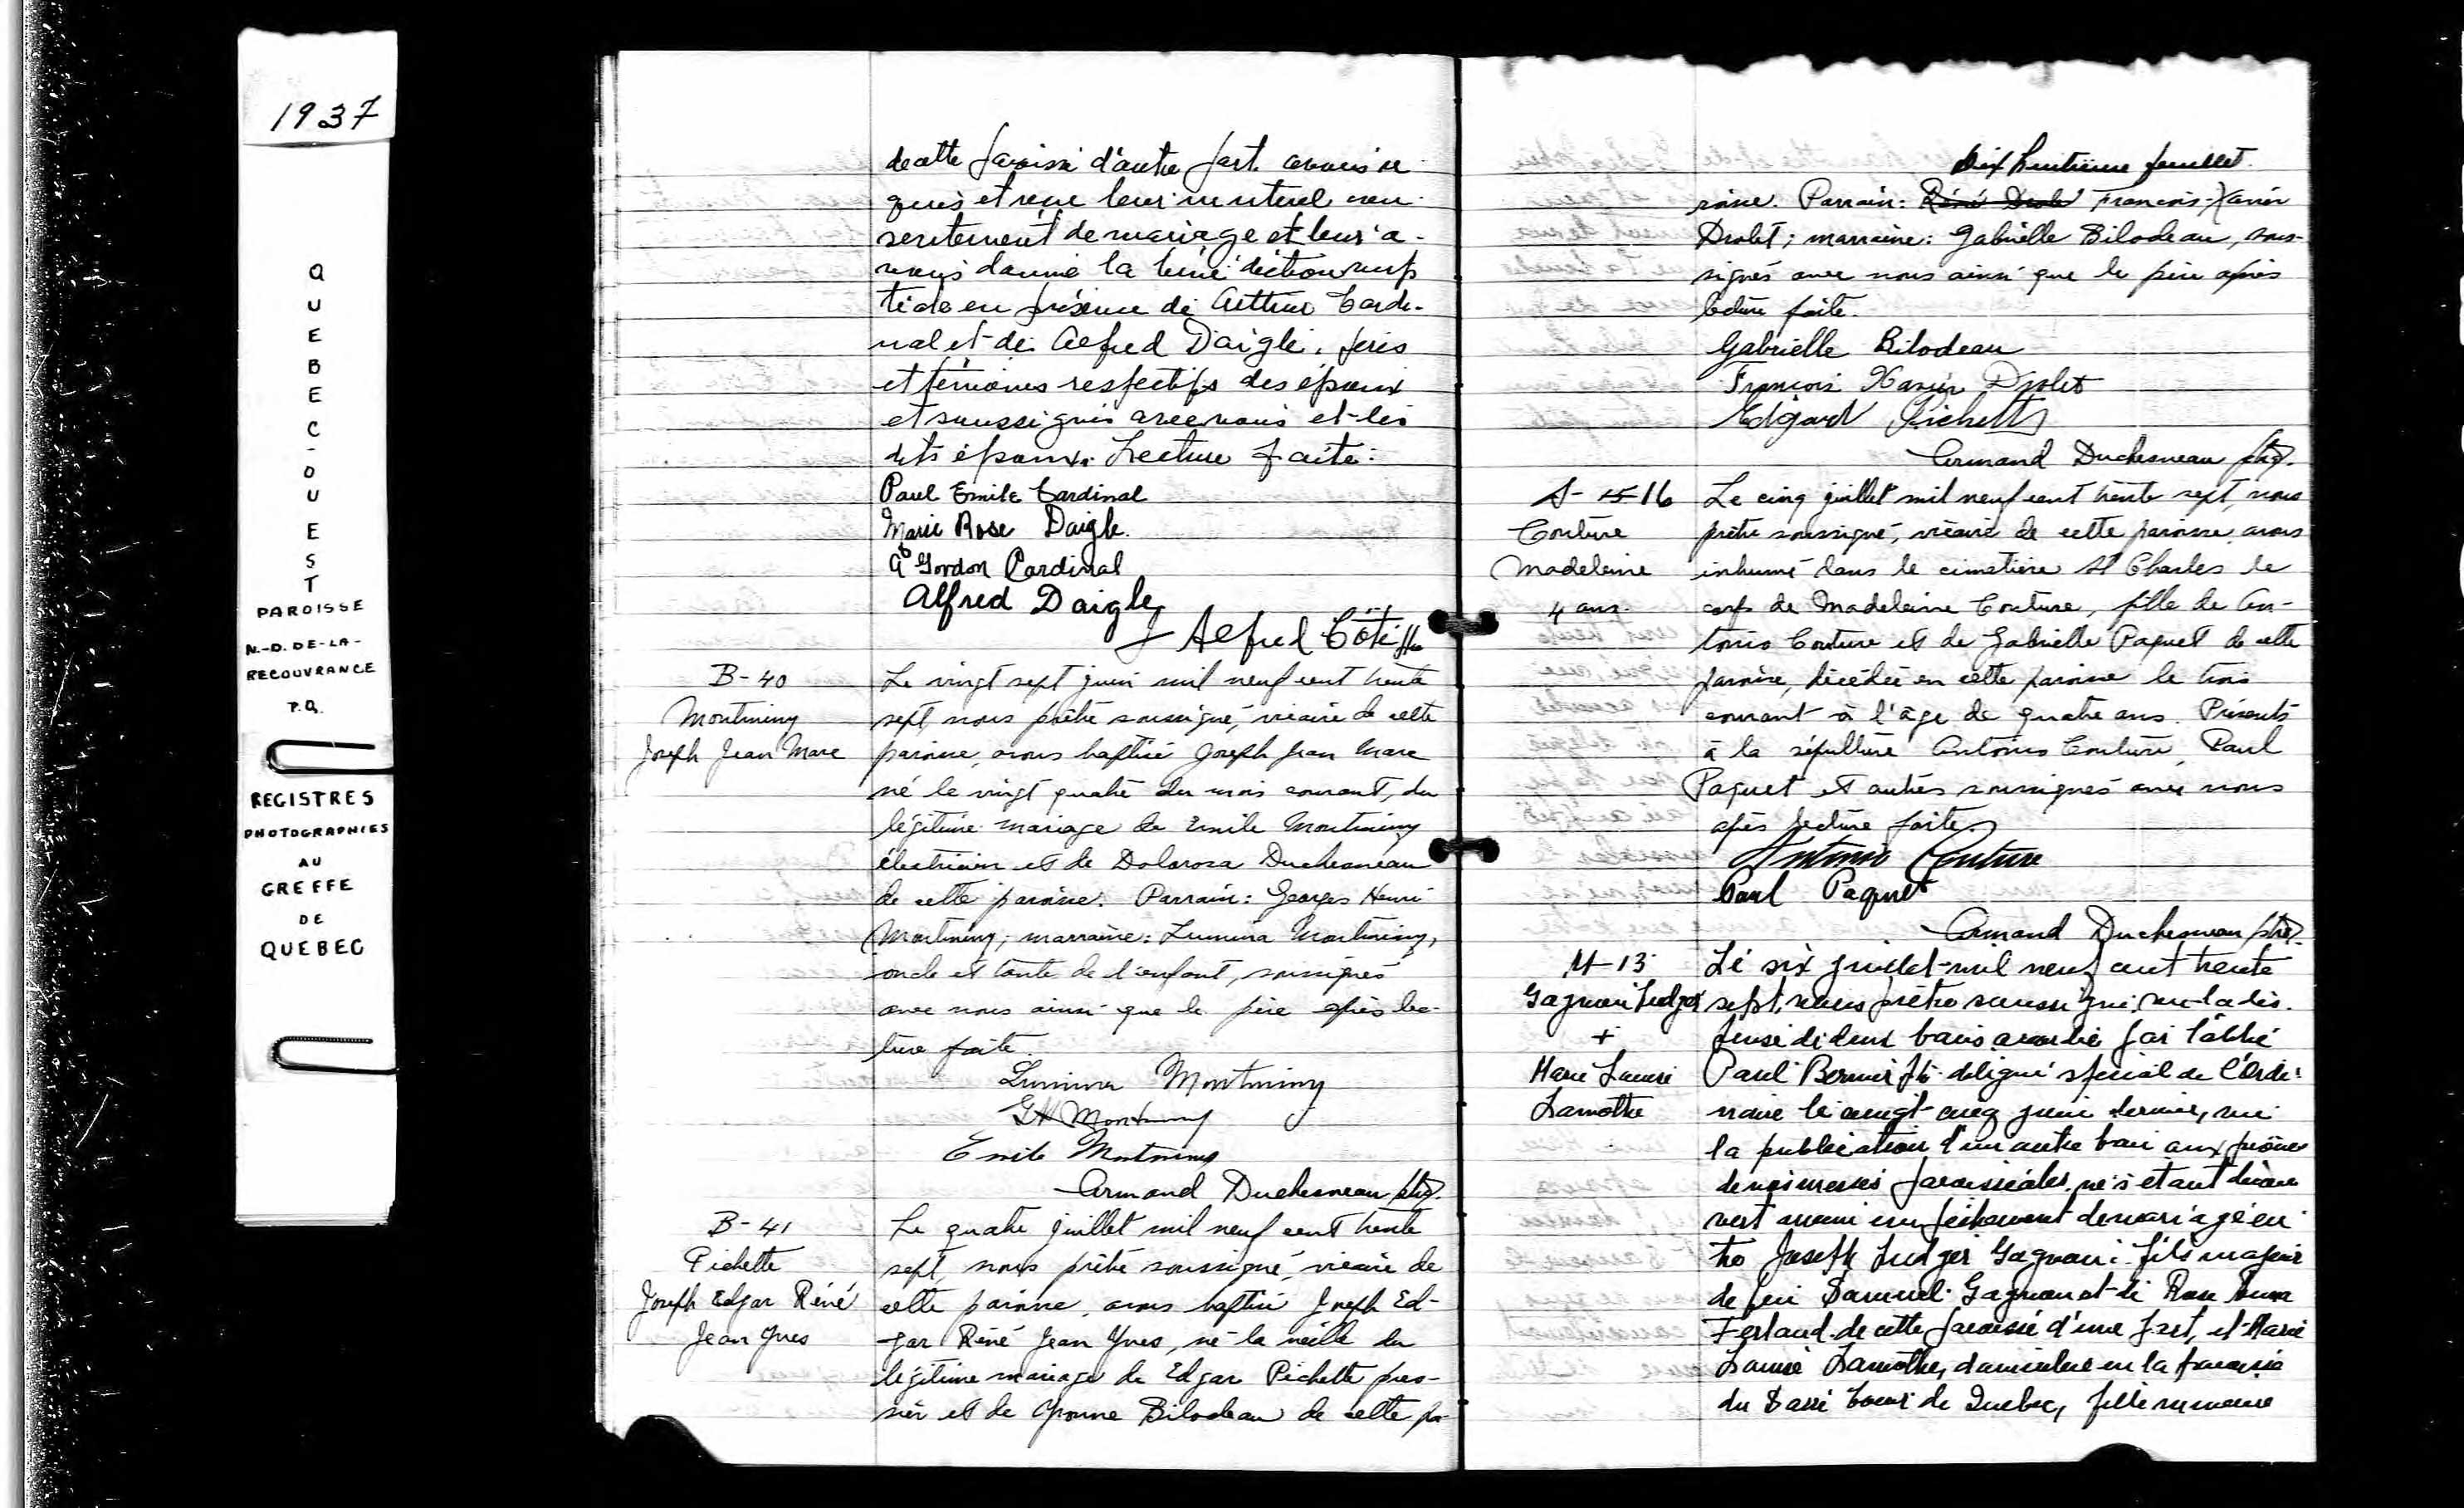 1937
QUEBEC-OUEST
PAROISSE
N.-D.-DE-LA-
RECOUVRANCE
P.Q.
REGISTRES
PHOTOGRAPHIES
AU
GREFFE
DE
QUEBEC
de cette paroisse d'autre part. avons re-
quis et reçu leur mutuel con-
sentement de mariage et leur a-
vons donné la bénédiction nup-
tiale en présence de Arthur Cardi-
nal et de Alfred Daigle, pères
et témoins respectifs des époux
et soussignés avec nous et les
dits époux. Lecture faite.
Paul Emile Cardinal
Marie Rose Daigle.
A Gordon Cardinal
Alfred Daigle
Alfred Côté ptre
B-40
Montminy
Joseph Jean Marc
Le vingt sept juin mil neuf cent trente
sept, nous prêtre soussigné, vicaire de cette
paroisse, avons baptisé Joseph Jean Marc
né le vingt quatre du mois courant, du
légitime mariage de Emile Montminy
électricien et de Dolorosa Duchesneau
de cette paroisse. Parrain: Georges Henri
Montminy; marraine: Lumina Montminy,
oncle et tante de l'enfant, soussignés
avec nous ainsi que le père après lec-
ture faite.
Lumina Montminy
GH Montminy
Emile Montminy
Armand Duchesneau ptre.
B-41
Pichette
Joseph Edgar Réné
Jean Yves
Le quatre juillet mil neuf cent trente
sept, nous prêtre soussigné, vicaire de
cette paroisse, avons baptisé Joseph Ed-
gar Réné Jean Yves, né la veille du
légitime mariage de Edgar Pichette pres-
sier et de Yvonne Bilodeau de cette pa-
Dix huitième feuillet.
roisse. Parrain: Réné Drolet François-Xavier
Drolet; marraine: Gabrielle Bilodeau, sous-
signés avec nous ainsi que le père après
lecture faite.
Gabrielle Bilodeau
François Xavier Drolet
Edgard Pichette
Armand Duchesneau ptre.
S- 15 16
Couture
Madeleine
4 ans.
Le cinq juillet mil neuf cent trente sept, nous
prêtre soussigné, vicaire de cette paroisse, avons
inhumé dans le cimetière St Charles le
corps de Madeleine Couture, fille de An-
tonio Couture et de Gabrielle Paquet de cette
paroisse, décédée en cette paroisse le trois
courant à l'âge de quatre ans. Présents
à la sépulture Antonio Couture, Paul
Paquet et autres soussignés avec nous
après lecture faite.
Antonio Couture
Paul Paquet
Armand Duchesneau ptre.
M-13
Gagnon Ludger
+
Marie Laure
Lamothe
Le six juillet mil neuf cent trente
sept, nous prêtre soussigné, vu la dis-
pense de deux bans accordée par l'abbé
Paul Bernier ptre délégué spécial de l'Ordi-
naire le vingt-cinq juin dernier, vu
la publication d'un autre ban aux prônes
de nos messes paroissiales, ne s'étant décou-
vert aucun empêchement de mariage en-
tre Joseph Ludger Gagnon, fils majeur
de feu Samuel Gagnon et de Rose
Ferland de cette paroisse d'une part, et Marie
Laure Lamothe, domiciliée en la paroisse
du Sacré Coeur de Québec, fille mineure